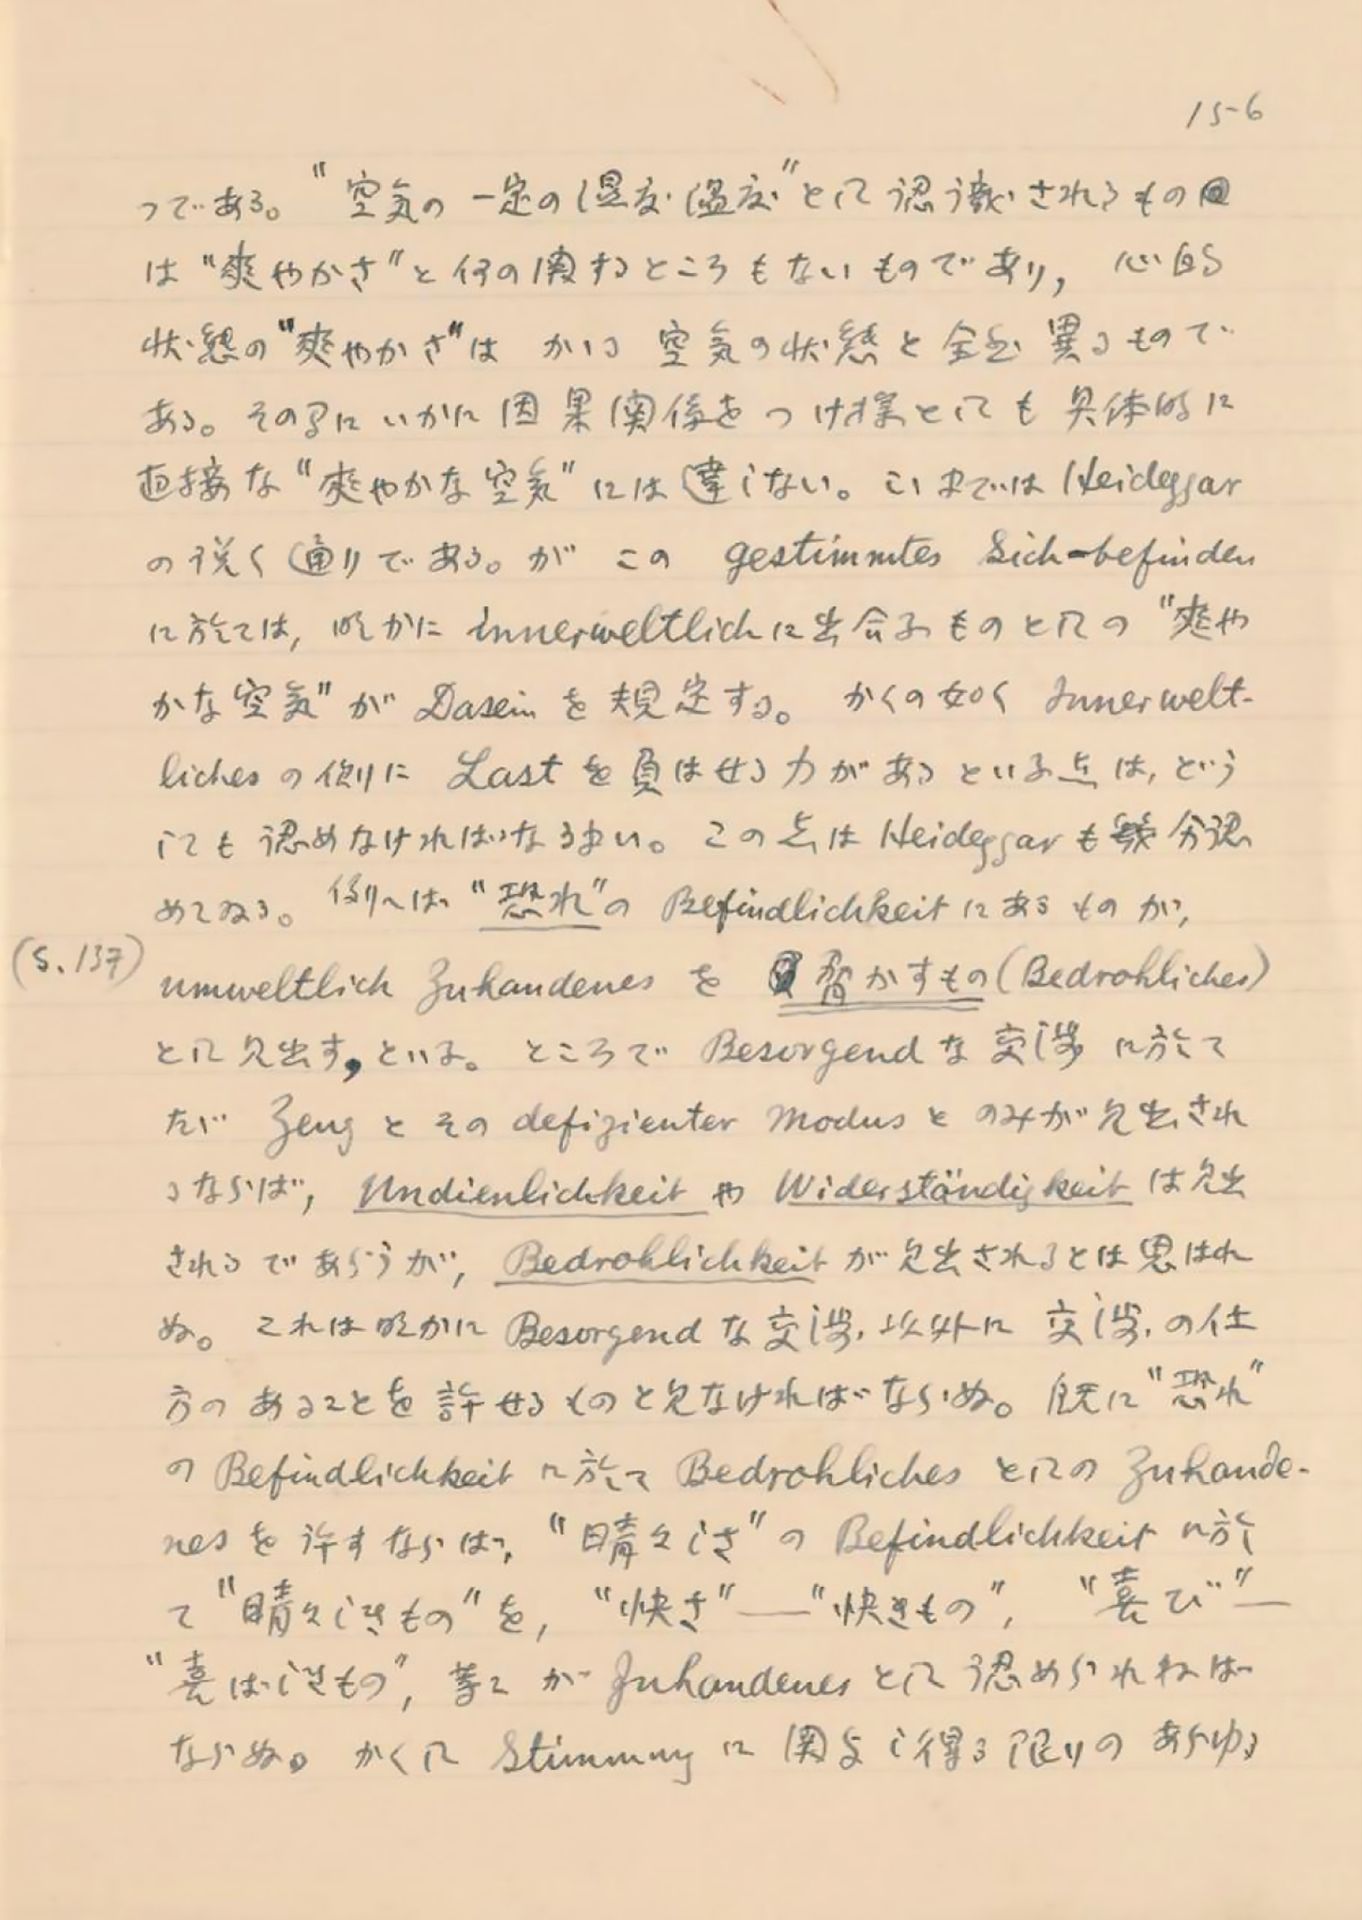 15-6
つである。"空気の一定の湿度・温度"として認識されるもの
は"爽やかさ"と何の関するところもないものであり, 心的
状態の"爽やかさ"は かゝる 空気の状態と全然異るもので
ある。その間にいかに因果関係をつけ様としても具体的に
直接な"爽やかな空気"には達しない。こゝまでは Heideggar
の説く通りである。が この gestimmtes Sich-befinden
に於ては, 明かに innerweltlich に出会ふものとしての "爽や
かな空気" が Dasein を規定する。 かくの如く Innerwelt-
liches の側に Last を負はせる力があるといふ点は, どう
しても認めなければなるまい。この点は Heideggar も幾分認
めてゐる。例へば "恐れ"の Befindlichkeit にあるものが,
(S. 137) umweltlich Zuhandenes を 脅かすもの (Bedrohliches)
として見出す, といふ。ところで Besorgend な交渉に於て
たゞ Zeug とその defizienter Modus とのみが見出され
るならば, Undienlichkeit や Widerständigkeit は見出
されるであらうが, Bedrohlichkeit が見出されるとは思はれ
ぬ。これは明かに Besorgend な交渉以外に 交渉の仕
方のあることを許せるものと見なければならぬ。既に "恐れ"
の Befindlichkeit に於て Bedrohliches としての Zuhande-
nes を許すならば, "晴々しさ"の Befindlichkeit に於
て "晴々しきもの" を, "快さ"—"快きもの", "喜び"—
"喜ばしきもの", 等々が Zuhandenes として認められねば
ならぬ。かくして Stimmung に関与し得る限りの あらゆる